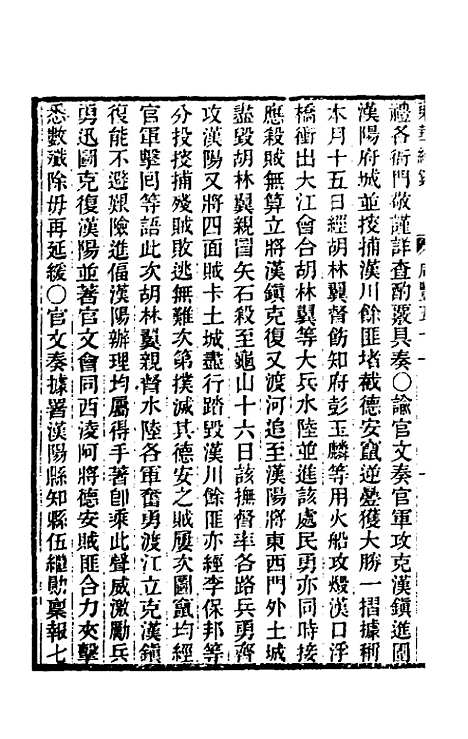 禮各衙門敬謹詳查酌覈具奏〇諭官文奏官軍攻克漢鎮進圍
漢陽府城並搜捕漢川餘匪堵截德安竄逆疊獲大勝一摺據稱
本月十五日經胡林翼督飭知府彭玉麟等用火船攻燬漢口浮
橋衝出大江會合胡林翼等大兵水陸並進該處民勇亦同時接
應殺賊無算立將漢鎮克復又渡河追至漢陽將東西門外土城
盡毀胡林翼親冒矢石殺至龜山十六日該撫督率各路兵勇齊
攻漢陽又將四面賊卡土城盡行踏毀漢川餘匪亦經李保邦等
分投搜捕殘賊敗逃無難次第撲滅其德安之賊屢次圖竄均經
官軍擊回等語此次胡林翼親督水陸各軍奮勇渡江立克漢鎮
復能不避艱險進偪漢陽辦理均屬得手著卽乘此聲威激勵兵
勇迅圖克復漢陽並著官文會同西凌阿將德安賊匪合力夾擊
悉數殲除毋再延緩〇官文奏據署漢陽縣知縣伍繼勛稟報七